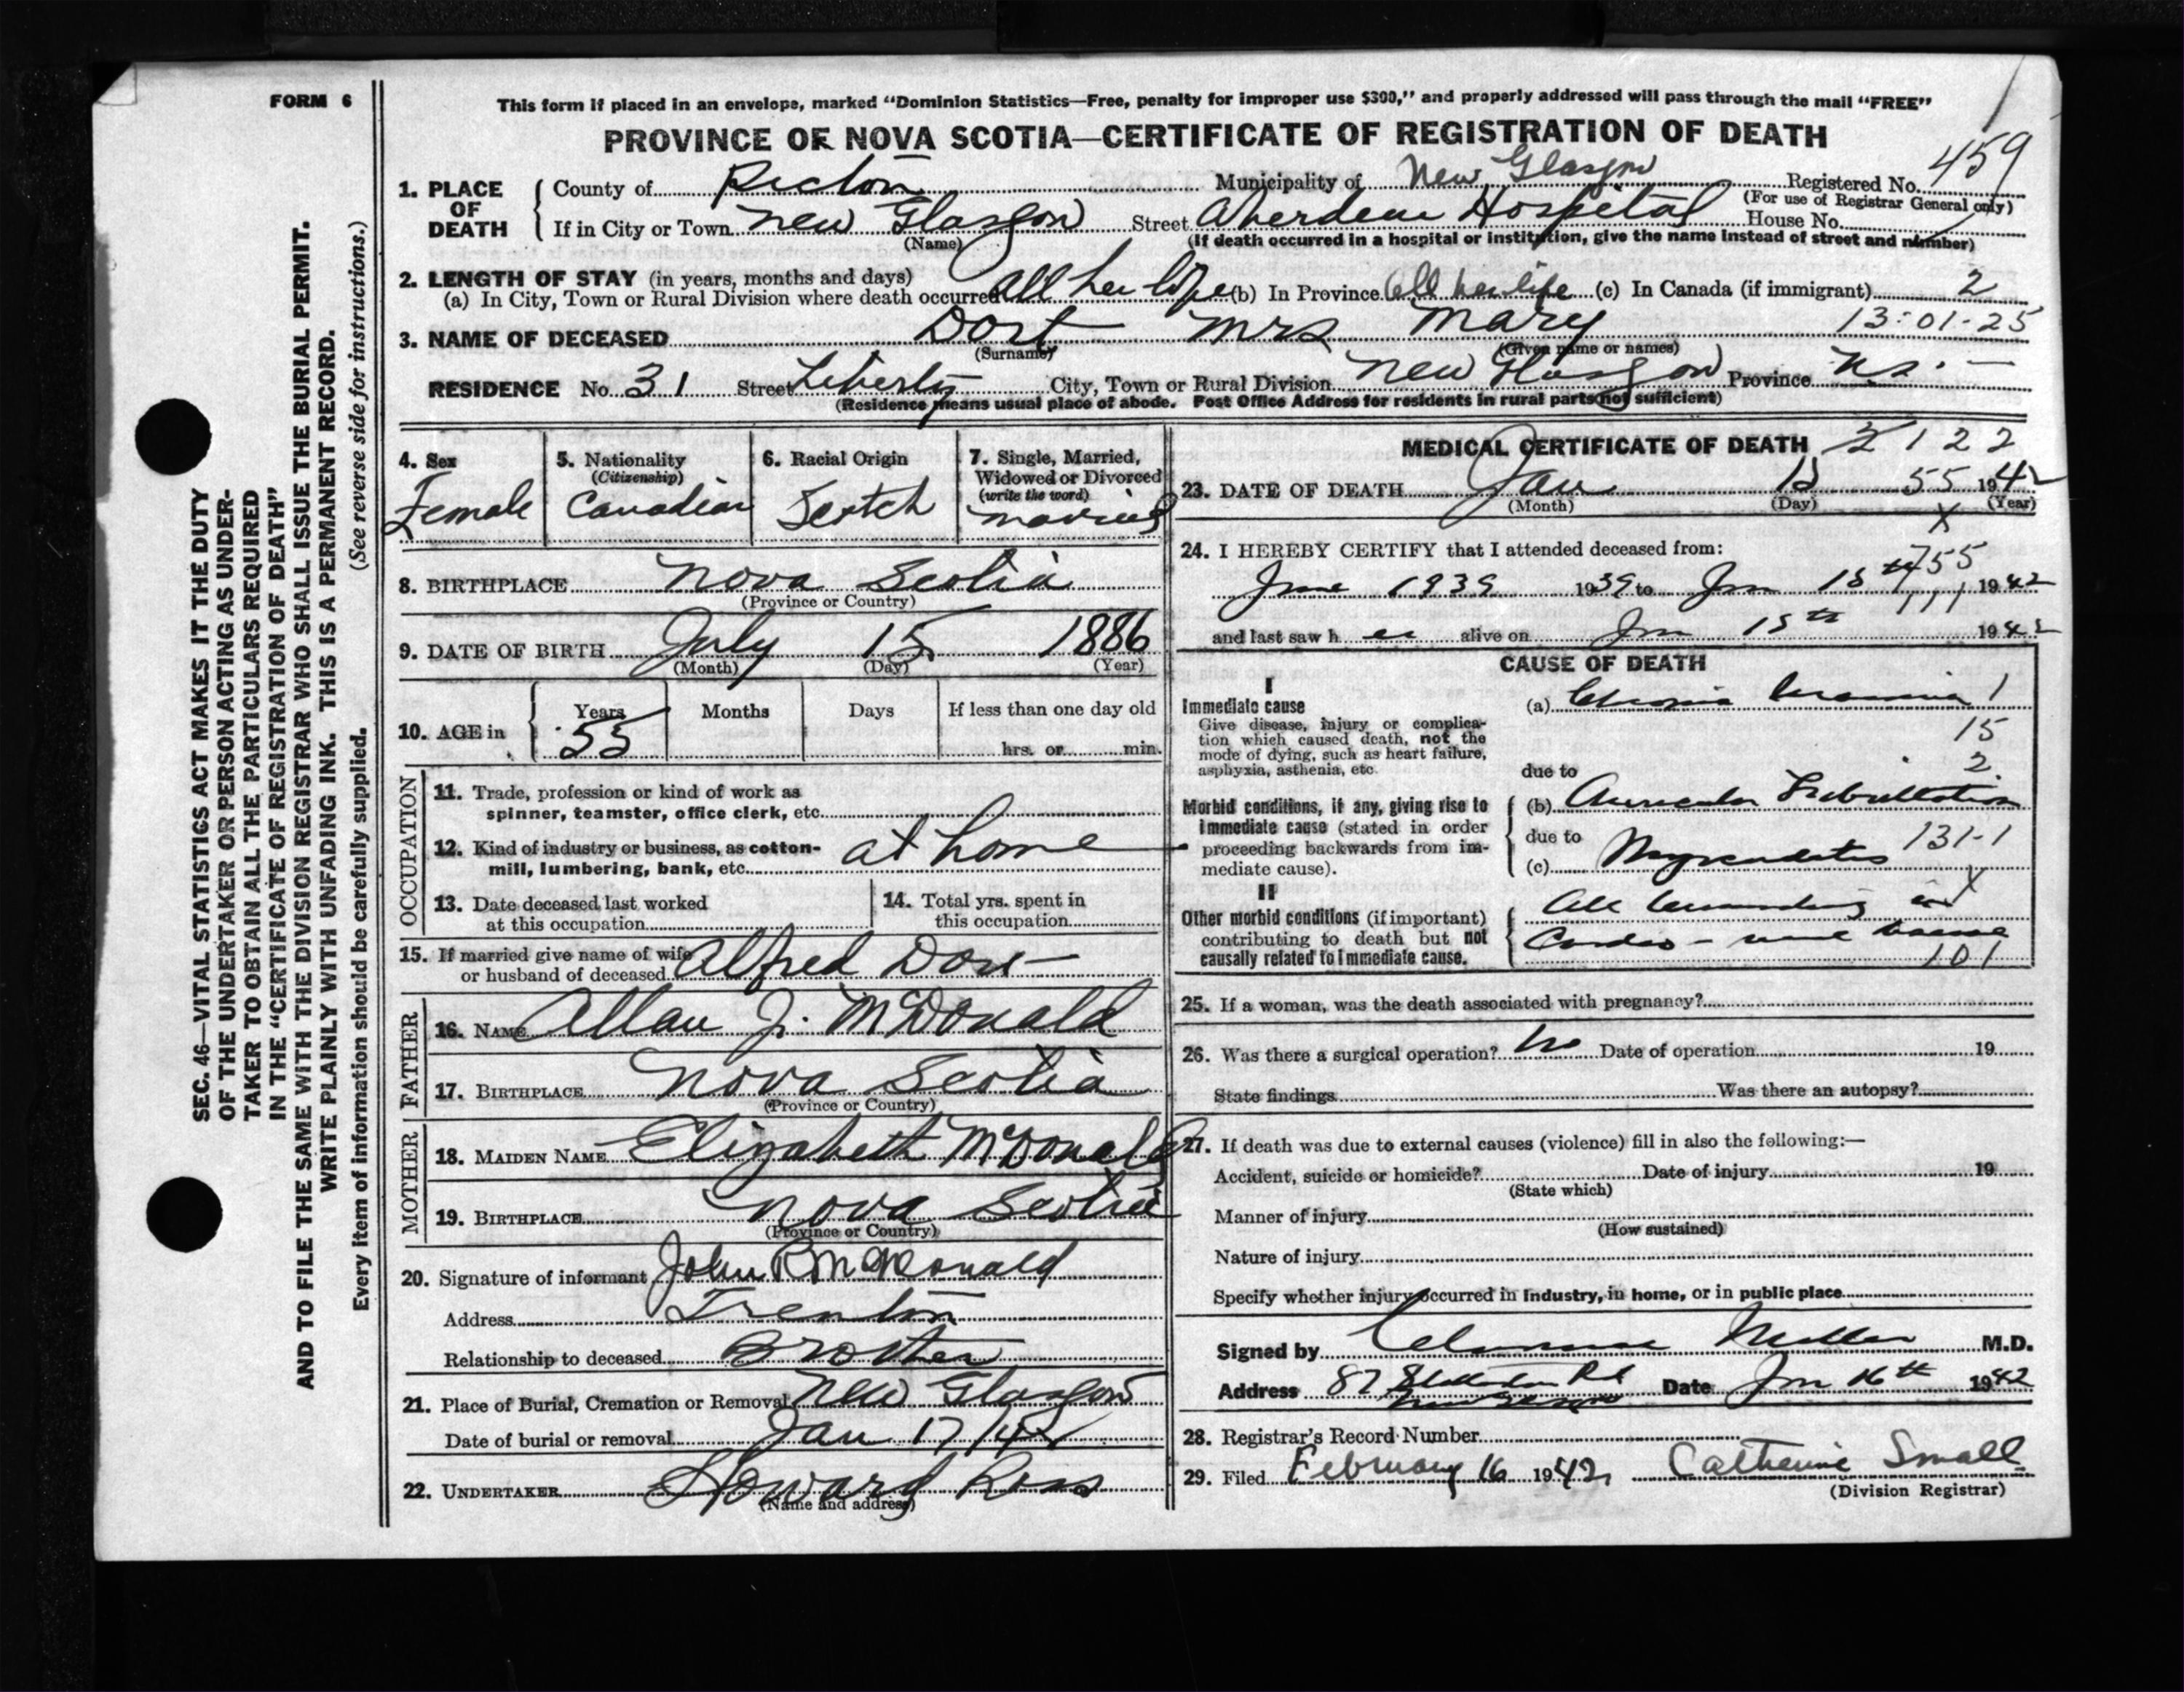 FORM 6
This form if placed in an envelope, marked “Dominion Statistics—Free, penalty for improper use $300,” and properly addressed will pass through the mail “FREE”
PROVINCE OF NOVA SCOTIA—CERTIFICATE OF REGISTRATION OF DEATH
459
1. PLACE OF DEATH
County of Pictou Municipality of New Glasgow Registered No.
(For use of Registrar General only)
If in City or Town New Glasgow Street Aberdeen Hospital House No.
(Name) (If death occurred in a hospital or institution, give the name instead of street and number)
2. LENGTH OF STAY (in years, months and days)
(a) In City, Town or Rural Division where death occurred All her life (b) In Province All her life (c) In Canada (if immigrant) 2
3. NAME OF DECEASED Dort Mrs Mary 13-01-25
(Surname) (Given name or names)
RESIDENCE No. 31 Street Liberty City, Town or Rural Division New Glasgow Province N.S.
(Residence means usual place of abode. Post Office Address for residents in rural parts not sufficient)
4. Sex
Female
5. Nationality
(Citizenship)
Canadian
6. Racial Origin
Scotch
7. Single, Married,
Widowed or Divorced
(write the word)
married
8. BIRTHPLACE Nova Scotia
(Province or Country)
9. DATE OF BIRTH July 15 1886
(Month) (Day) (Year)
10. AGE in Years Months Days If less than one day old
55 hrs. or min.
OCCUPATION
11. Trade, profession or kind of work as
spinner, teamster, office clerk, etc.
12. Kind of industry or business, as cotton-
mill, lumbering, bank, etc. at home
13. Date deceased last worked
at this occupation
14. Total yrs. spent in
this occupation
15. If married give name of wife
or husband of deceased Alfred Dort
FATHER
16. NAME Allan J. McDonald
17. BIRTHPLACE Nova Scotia
(Province or Country)
MOTHER
18. MAIDEN NAME Elizabeth McDonald
19. BIRTHPLACE Nova Scotia
(Province or Country)
20. Signature of informant John R McDonald
Address Trenton
Relationship to deceased Brother
21. Place of Burial, Cremation or Removal New Glasgow
Date of burial or removal Jan 17/42
22. UNDERTAKER Howard Ross
(Name and address)
MEDICAL CERTIFICATE OF DEATH 122
23. DATE OF DEATH Jan 15 55 1942
(Month) (Day) (Year)
X
24. I HEREBY CERTIFY that I attended deceased from:
755
June 1939 1939 to Jan 15th 1942
111
and last saw her alive on Jan 15th 1942
CAUSE OF DEATH
I
Immediate cause
Give disease, injury or complica-
tion which caused death, not the
mode of dying, such as heart failure,
asphyxia, asthenia, etc.
(a) Chronic Uraemia 1
15
2
due to
Morbid conditions, if any, giving rise to
immediate cause (stated in order
proceeding backwards from im-
mediate cause).
(b) Auricular Fibrillation
due to 131-1
(c) Myocarditis
X
II
Other morbid conditions (if important)
contributing to death but not
causally related to immediate cause.
All
Cardio-
101
25. If a woman, was the death associated with pregnancy?
26. Was there a surgical operation? No Date of operation 19
State findings Was there an autopsy?
27. If death was due to external causes (violence) fill in also the following:—
Accident, suicide or homicide? Date of injury 19
(State which)
Manner of injury
(How sustained)
Nature of injury
Specify whether injury occurred in industry, in home, or in public place
Signed by Clarence Miller M.D.
Address 87 Stellarton Rd Date Jan 16th 1942
New Glasgow
28. Registrar's Record Number
29. Filed February 16 1942 Catherine Small
(Division Registrar)
SEC. 46—VITAL STATISTICS ACT MAKES IT THE DUTY
OF THE UNDERTAKER OR PERSON ACTING AS UNDER-
TAKER TO OBTAIN ALL THE PARTICULARS REQUIRED
IN THE “CERTIFICATE OF REGISTRATION OF DEATH”
AND TO FILE THE SAME WITH THE DIVISION REGISTRAR WHO SHALL ISSUE THE BURIAL PERMIT.
WRITE PLAINLY WITH UNFADING INK. THIS IS A PERMANENT RECORD.
Every item of information should be carefully supplied. (See reverse side for instructions.)